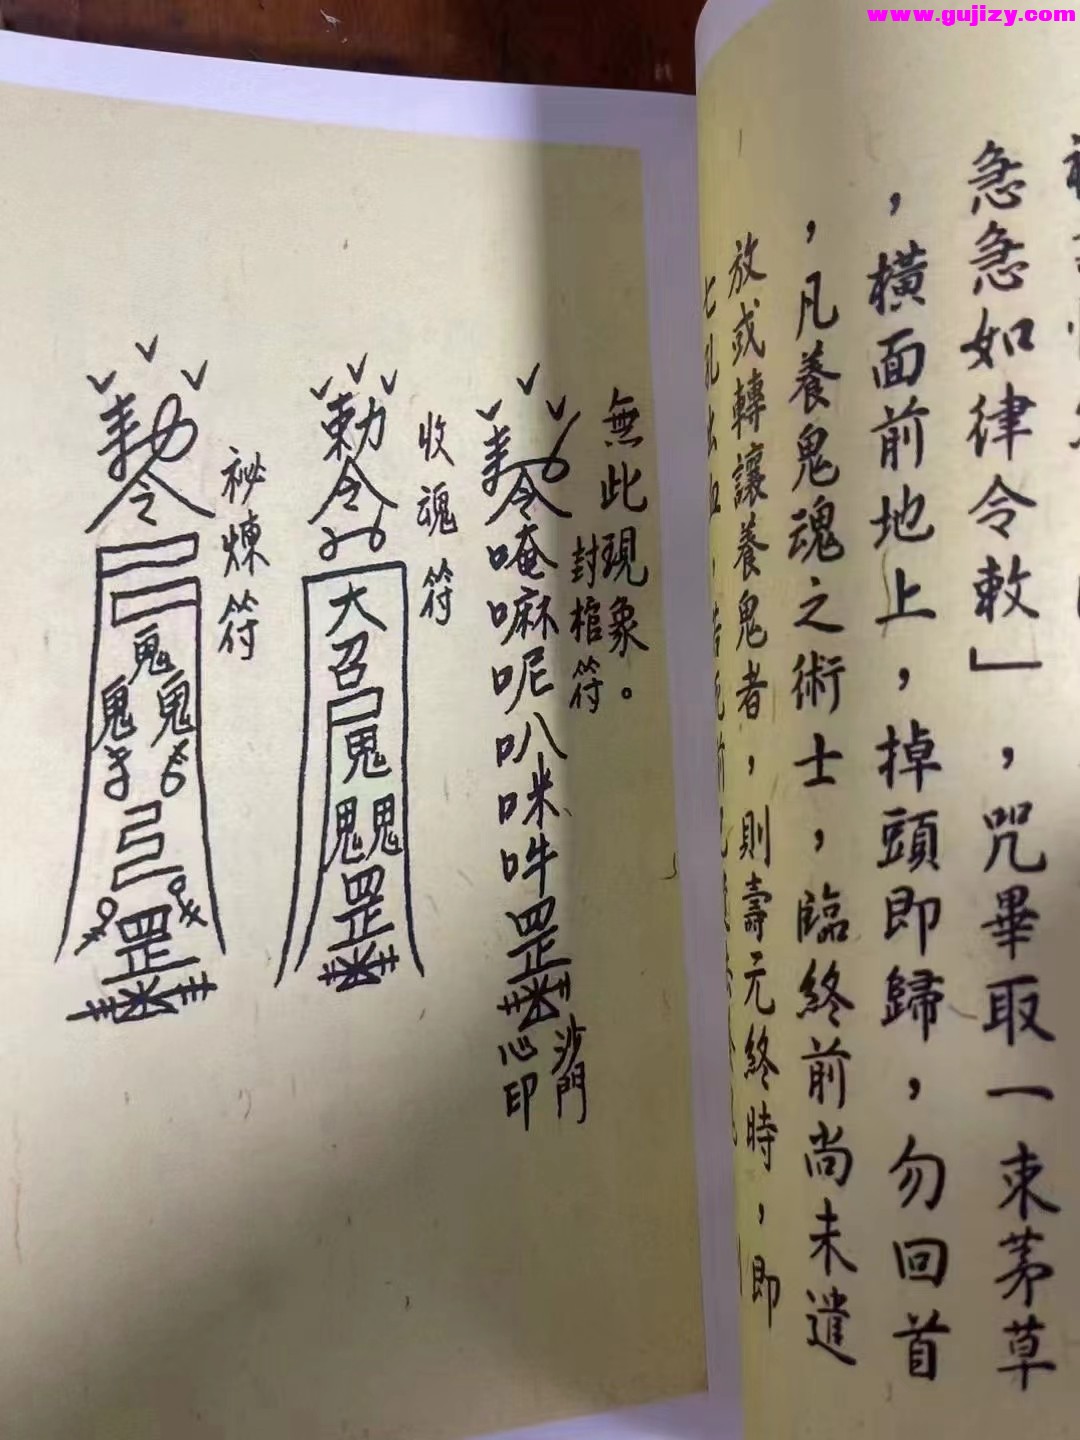 www.gujizy.com
急急如律令敕」，咒畢取一束茅草
，橫面前地上，掉頭即歸，勿回首
，凡養鬼魂之術士，臨終前尚未遣
放或轉讓養鬼者，則壽元終時，即
七孔出血
無此現象。
封棺符
勅令唵嘛呢叭咪吽罡
沙門
心印
收魂符
敕令
大召鬼鬼鬼罡
祕煉符
勅令
鬼鬼鬼
罡